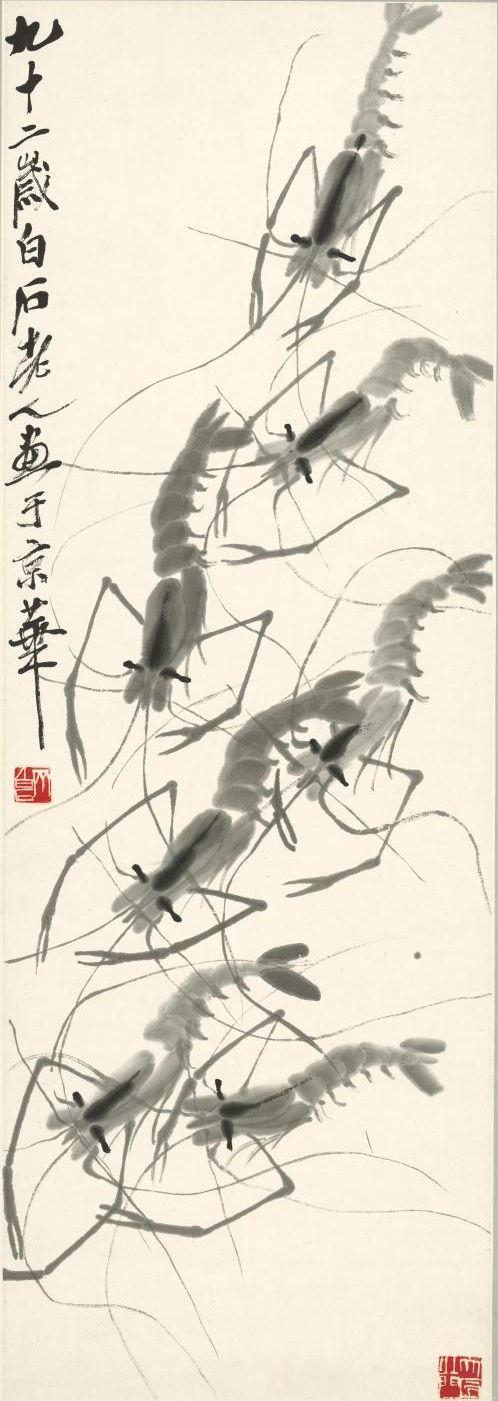 九十二歲白石老人畫于京華